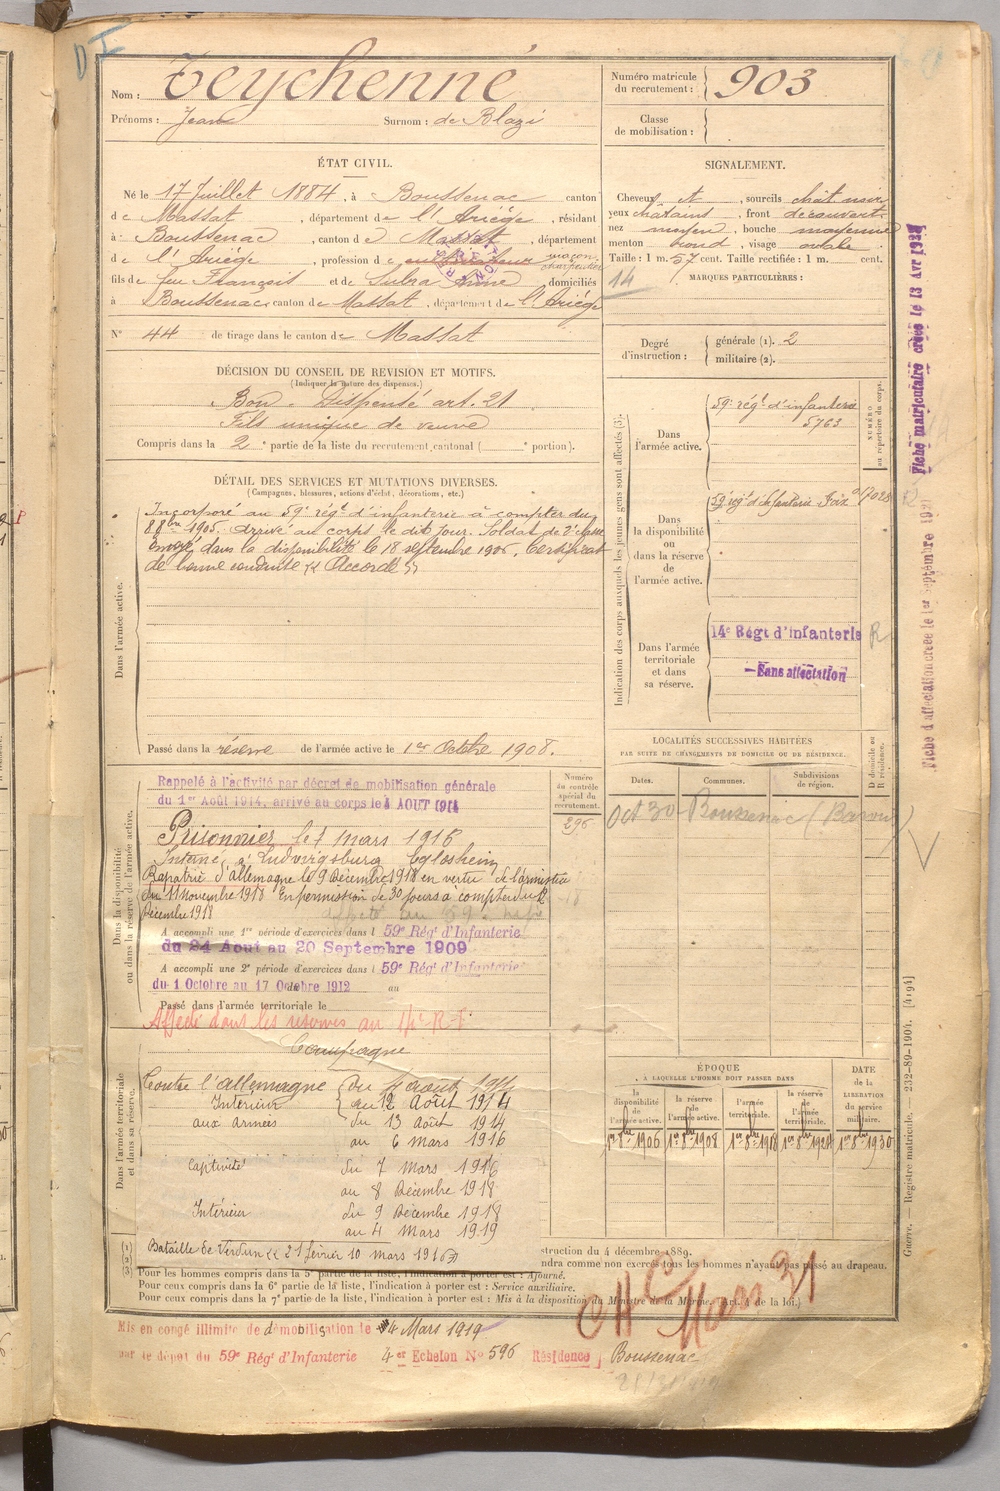 Nom : Teychenné
Prénoms : Jean Surnom : de Blazi
Numéro matricule du recrutement : 903
Classe de mobilisation :
ÉTAT CIVIL.
Né le 17 Juillet 1884, à Boussenac canton
de Massat, département de l'Ariège, résidant
à Boussenac, canton de Massat, département
de l'Ariège, profession de cultivateur maçon charpentier
fils de feu François et de Subra Anne domiciliés
à Boussenac canton de Massat, département de l'Ariège
N° 44 de tirage dans le canton de Massat
SIGNALEMENT.
Cheveux et, sourcils chât noir
yeux châtains, front découvert
nez moyen, bouche moyenne
menton rond, visage ovale
Taille : 1 m. 57 cent. Taille rectifiée : 1 m. cent.
14
MARQUES PARTICULIÈRES :
Degré d'instruction : générale (1). 2
militaire (2).
DÉCISION DU CONSEIL DE REVISION ET MOTIFS.
(Indiquer la nature des dispenses.)
Bon - Dispensé art. 21
Fils unique de veuve
Compris dans la 2e partie de la liste du recrutement cantonal ( portion).
DÉTAIL DES SERVICES ET MUTATIONS DIVERSES.
(Campagnes, blessures, actions d'éclat, décorations, etc.)
Dans l'armée active.
Incorporé au 59e régt d'infanterie à compter du
8 8bre 1905. Arrivé au corps le dit jour. Soldat de 2e classe
envoyé dans la disponibilité le 18 septembre 1906. Certificat
de bonne conduite « Accordé »
Passé dans la réserve de l'armée active le 1er Octobre 1908.
Dans la disponibilité ou dans la réserve de l'armée active.
Rappelé à l'activité par décret de mobilisation générale
du 1er Août 1914, arrivé au corps le 4 AOUT 1914
Prisonnier le 7 mars 1916
Interné à Ludwigsburg Eglosheim
Rapatrié d'Allemagne le 9 Décembre 1918 en vertu de l'armistice
du 11 Novembre 1918 En permission de 30 jours à compter du 12
Décembre 1918
A accompli une 1re période d'exercices dans l 59e Régt d'Infanterie
du 24 Aout au 20 Septembre 1909
A accompli une 2e période d'exercices dans l 59e Régt d'Infanterie
du 1 Octobre au 17 Octobre 1912 au
Passé dans l'armée territoriale le
Affecté dans les réserves au 14e R.I.
Numéro du contrôle spécial du recrutement.
296
Dans l'armée territoriale et dans sa réserve.
Campagne
Contre l'Allemagne du 4 août 1914
Intérieur au 12 Août 1914
aux armées du 13 Août 1914
au 6 mars 1916
Captivité du 7 Mars 1916
au 8 Décembre 1918
Intérieur du 9 Décembre 1918
au 4 Mars 1919
Bataille de Verdun « 21 février 10 mars 1916 »
Indication des corps auxquels les jeunes gens sont affectés (3).
NUMÉRO au répertoire du corps.
Dans l'armée active.
59e régt d'infanterie
5763
Dans la disponibilité ou dans la réserve de l'armée active.
59e régt d'Infanterie Foix 017028
Dans l'armée territoriale et dans sa réserve.
14e Régt d'Infanterie R
— Sans affectation
LOCALITÉS SUCCESSIVES HABITÉES
PAR SUITE DE CHANGEMENTS DE DOMICILE OU DE RÉSIDENCE.
Dates. Communes. Subdivisions de région. D domicile ou R résidence.
Oct 30 Boussenac
ÉPOQUE
À LAQUELLE L'HOMME DOIT PASSER DANS
DATE de la LIBÉRATION du service militaire.
la disponibilité de l'armée active.
la réserve de l'armée active.
l'armée territoriale.
la réserve de l'armée territoriale.
1er 8bre 1906 1er 8bre 1908 1er 8bre 1918 1er 8bre 1924 1er 8bre 1930
(1)
(2)
(3)
struction du 4 décembre 1889.
ndra comme non exercés tous les hommes n'ayant pas passé au drapeau.
Pour les hommes compris dans la 5e partie de la liste, l'indication à porter est : Ajourné.
Pour ceux compris dans la 6e partie de la liste, l'indication à porter est : Service auxiliaire.
Pour ceux compris dans la 7e partie de la liste, l'indication à porter est : Mis à la disposition du Ministre de la Marine. (Art. 4 de la loi.)
CHC Mars 31
Mis en congé illimité de démobilisation le 4 Mars 1919
par le dépôt du 59e Régt d'Infanterie 4er Echelon No 596 Résidence Boussenac
Fiche matriculaire créée le 13 Avr
Fiche d'affectation créée le 1er Septembre
Guerre. — Registre matricule. — 232-89-1904. [4194]